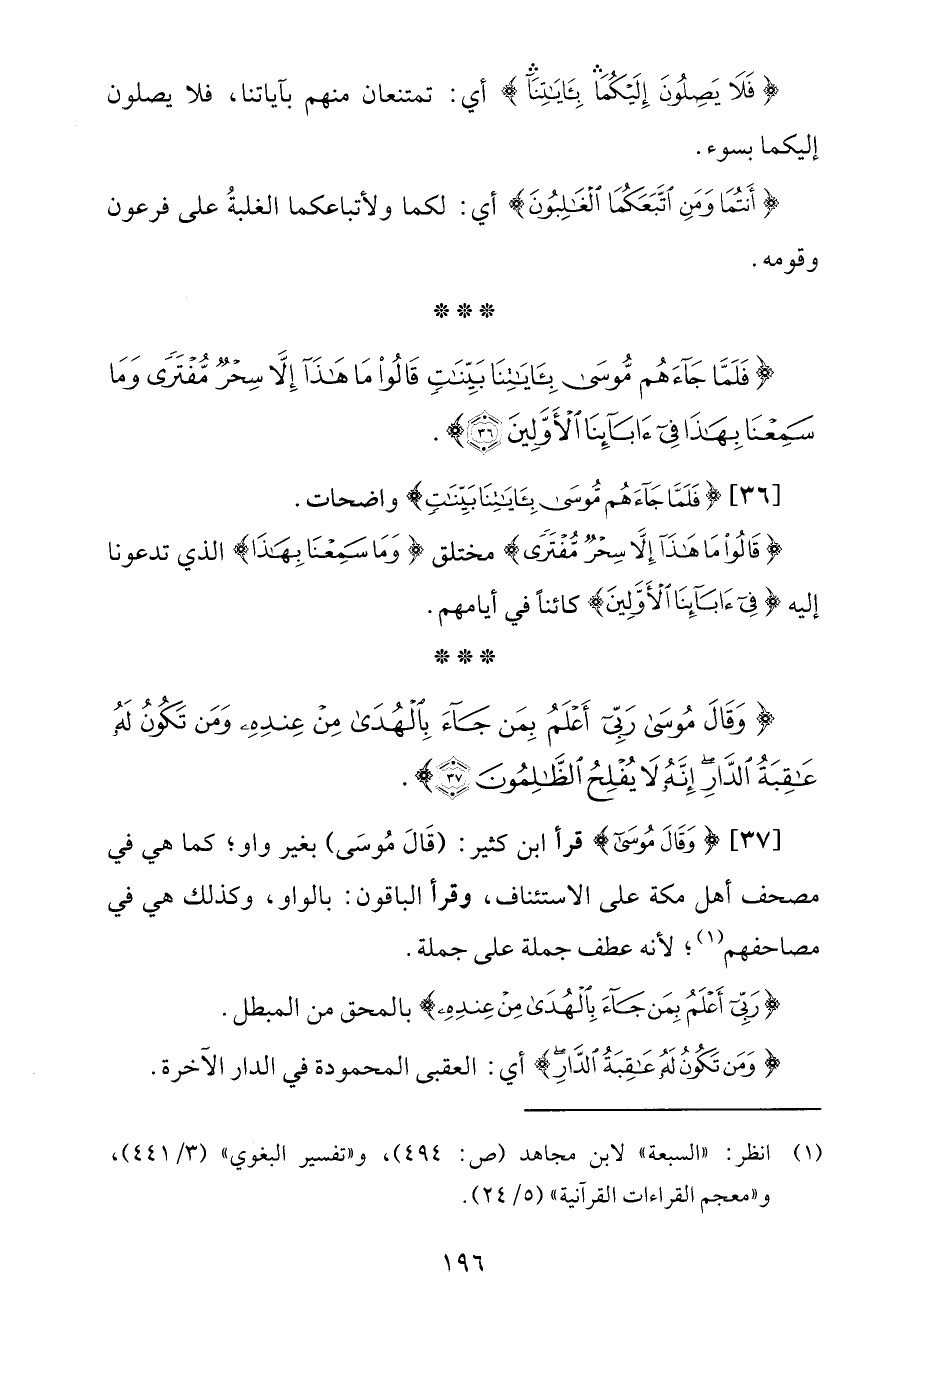 ﴿ فَلَا يَصِلُونَ إِلَيْكُمَا ۛ بِـَٔايَـٰتِنَآ ۛ ﴾ أي: تمتنعان منهم بآياتنا، فلا يصلون
إليكما بسوء.
﴿ أَنتُمَا وَمَنِ ٱتَّبَعَكُمَا ٱلْغَـٰلِبُونَ ﴾ أي: لكما ولأتباعكما الغلبةُ على فرعون
وقومه.
* * *
﴿ فَلَمَّا جَآءَهُم مُّوسَىٰ بِـَٔايَـٰتِنَا بَيِّنَـٰتٍ قَالُوا۟ مَا هَـٰذَآ إِلَّا سِحْرٌ مُّفْتَرًى وَمَا
سَمِعْنَا بِهَـٰذَا فِىٓ ءَابَآئِنَا ٱلْأَوَّلِينَ ٣٦ ﴾.
[٣٦] ﴿ فَلَمَّا جَآءَهُم مُّوسَىٰ بِـَٔايَـٰتِنَا بَيِّنَـٰتٍ ﴾ واضحات.
﴿ قَالُوا۟ مَا هَـٰذَآ إِلَّا سِحْرٌ مُّفْتَرًى ﴾ مختلق ﴿ وَمَا سَمِعْنَا بِهَـٰذَا ﴾ الذي تدعونا
إليه ﴿ فِىٓ ءَابَآئِنَا ٱلْأَوَّلِينَ ﴾ كائناً في أيامهم.
* * *
﴿ وَقَالَ مُوسَىٰ رَبِّىٓ أَعْلَمُ بِمَن جَآءَ بِٱلْهُدَىٰ مِنْ عِندِهِۦ وَمَن تَكُونُ لَهُۥ
عَـٰقِبَةُ ٱلدَّارِ ۖ إِنَّهُۥ لَا يُفْلِحُ ٱلظَّـٰلِمُونَ ٣٧ ﴾.
[٣٧] ﴿ وَقَالَ مُوسَىٰ ﴾ قرأ ابن كثير: (قَالَ مُوسَى) بغير واو؛ كما هي في
مصحف أهل مكة على الاستئناف، وقرأ الباقون: بالواو، وكذلك هي في
مصاحفهم(١)؛ لأنه عطف جملة على جملة.
﴿ رَبِّىٓ أَعْلَمُ بِمَن جَآءَ بِٱلْهُدَىٰ مِنْ عِندِهِۦ ﴾ بالمحق من المبطل.
﴿ وَمَن تَكُونُ لَهُۥ عَـٰقِبَةُ ٱلدَّارِ ۖ ﴾ أي: العقبى المحمودة في الدار الآخرة.
(١) انظر: «السبعة» لابن مجاهد (ص: ٤٩٤)، و«تفسير البغوي» (٣/ ٤٤١)،
و«معجم القراءات القرآنية» (٥/ ٢٤).
١٩٦